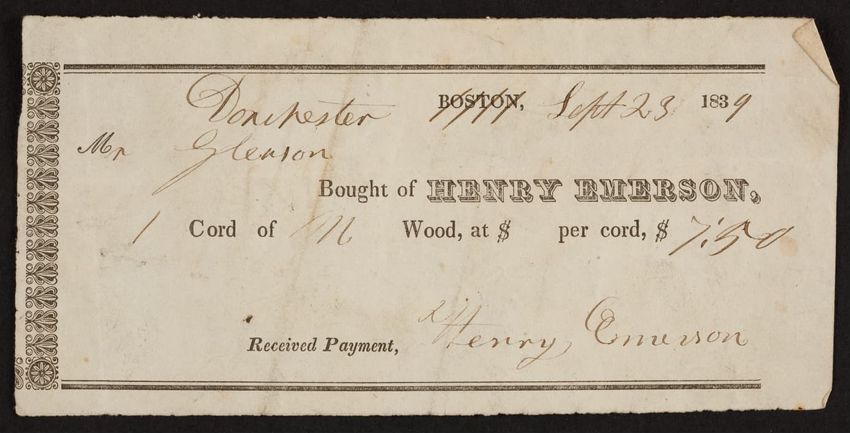 Dorchester BOSTON, Sept 23 1839
Mr Gleason
Bought of HENRY EMERSON,
1 Cord of M Wood, at $ per cord, $ 7.50
Received Payment, Henry Emerson